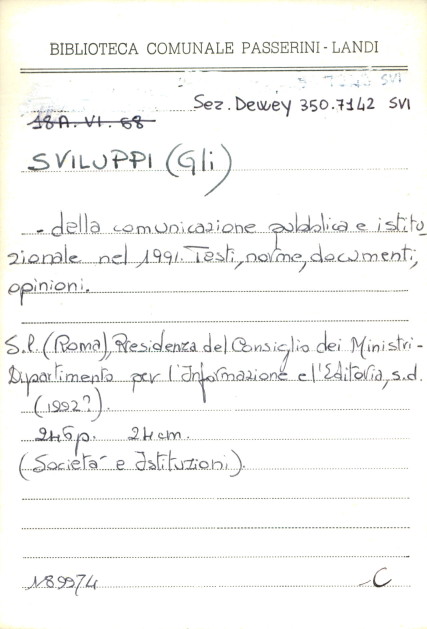 BIBLIOTECA COMUNALE PASSERINI-LANDI
Sez. Dewey 350.7142 SVI
18A. VI. 68
SVILUPPI (Gli)
- della comunicazione pubblica e istitu
zionale nel 1991. Testi, norme, documenti,
opinioni.
S.l. (Roma), Presidenza del Consiglio dei Ministri -
Dipartimento per l'Informazione e l'Editoria, s.d.
(1992?).
246p. 24cm.
(Società e Istituzioni).
189974
C